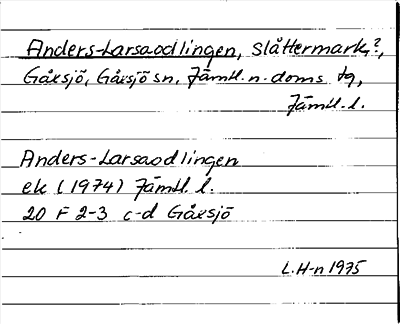 Anders-Larsaodlingen, slåttermark?,
Gåxsjö, Gåxsjö sn. Jämtl. n. doms tg,
Jämtl. l.
Anders-Larsaodlingen
ek (1974) Jämtl. l.
20 F 2-3 c-d Gåxsjö
L. H-n 1975